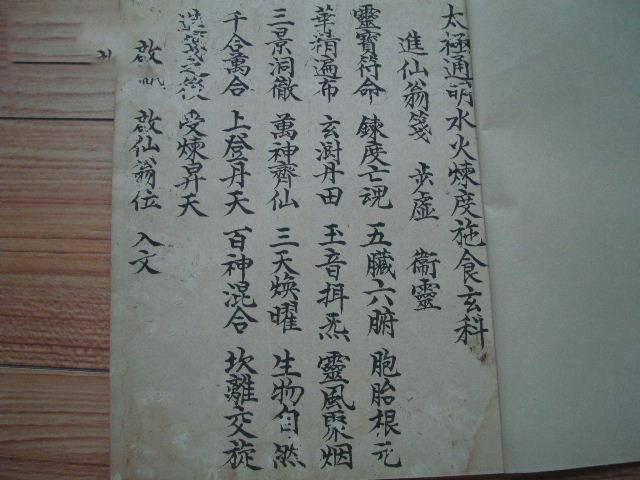 太極通明水火煉度施食玄科
進仙翁箋 步虛 衞靈
靈寶符命 鍊度亡魂 五臟六腑 胞胎根元
華精遍布 玄澍丹田 玉音摄炁 靈風聚烟
三景洞徹 萬神齊仙 三天煥曜 生物自然
千合萬合 上登丹天 百神混合 坎離交旋
受煉昇天
啟 啟仙翁位 入文